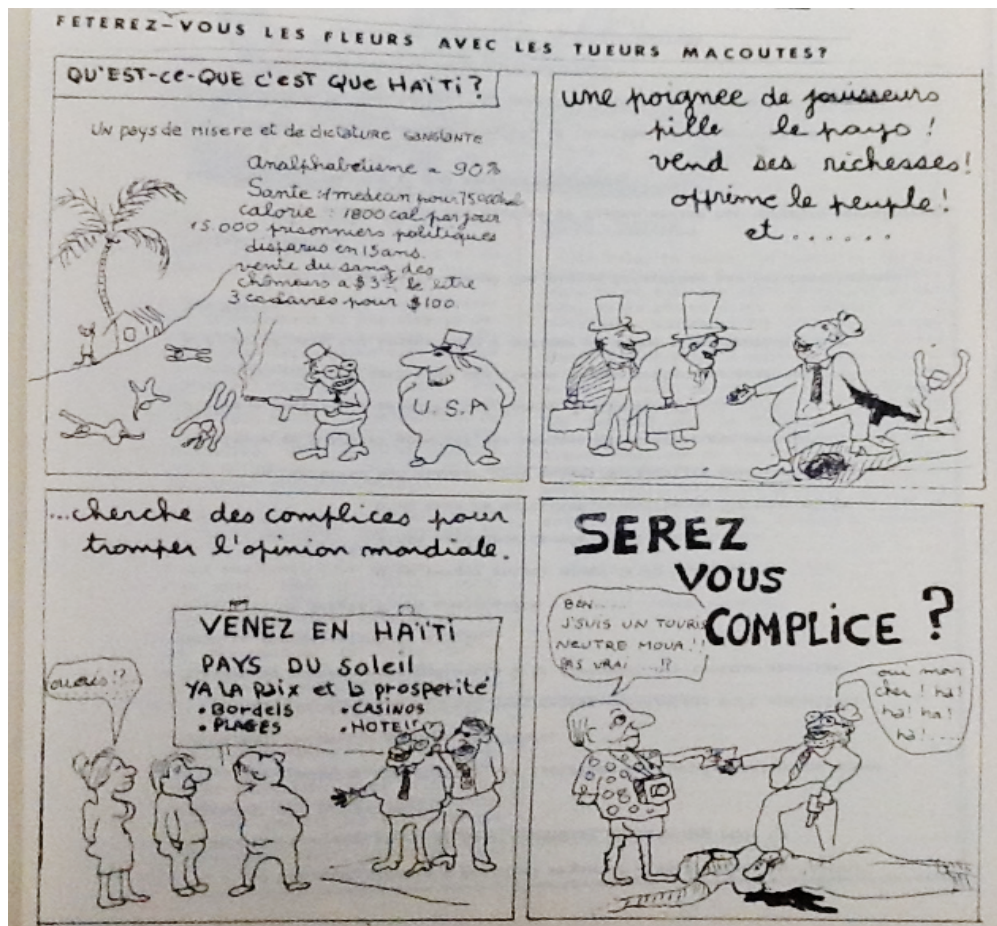 FETEREZ-VOUS LES FLEURS AVEC LES TUEURS MACOUTES?
QU'EST-CE-QUE C'EST QUE HAÏTI?
UN pays de misere et de dictature sanglante
Analphabetisme = 90%
Sante : 1 medecin pour
calorie : 1800 cal par jour
15.000 prisonniers politiques
disparus en 15 ans.
vente du sang des
chômeurs a $3 le litre
3 cadavres pour $100.
U.S.A
une poignee de jouisseurs
pille le pays !
vend ses richesses!
opprime le peuple!
et.......
...cherche des complices pour
tromper l'opinion mondiale.
VENEZ EN HAÏTI
PAYS DU Soleil
YA LA Paix et la prosperité
• Bordels • CASINOS
• PLAGES • HOTELS
ouais!?
SEREZ
VOUS
COMPLICE ?
BEN....
J'SUIS UN TOURIS
NEUTRE MOUA !!
PAS VRAI ...!?
oui mon
cher ! ha!
ha! ha!
ha!....